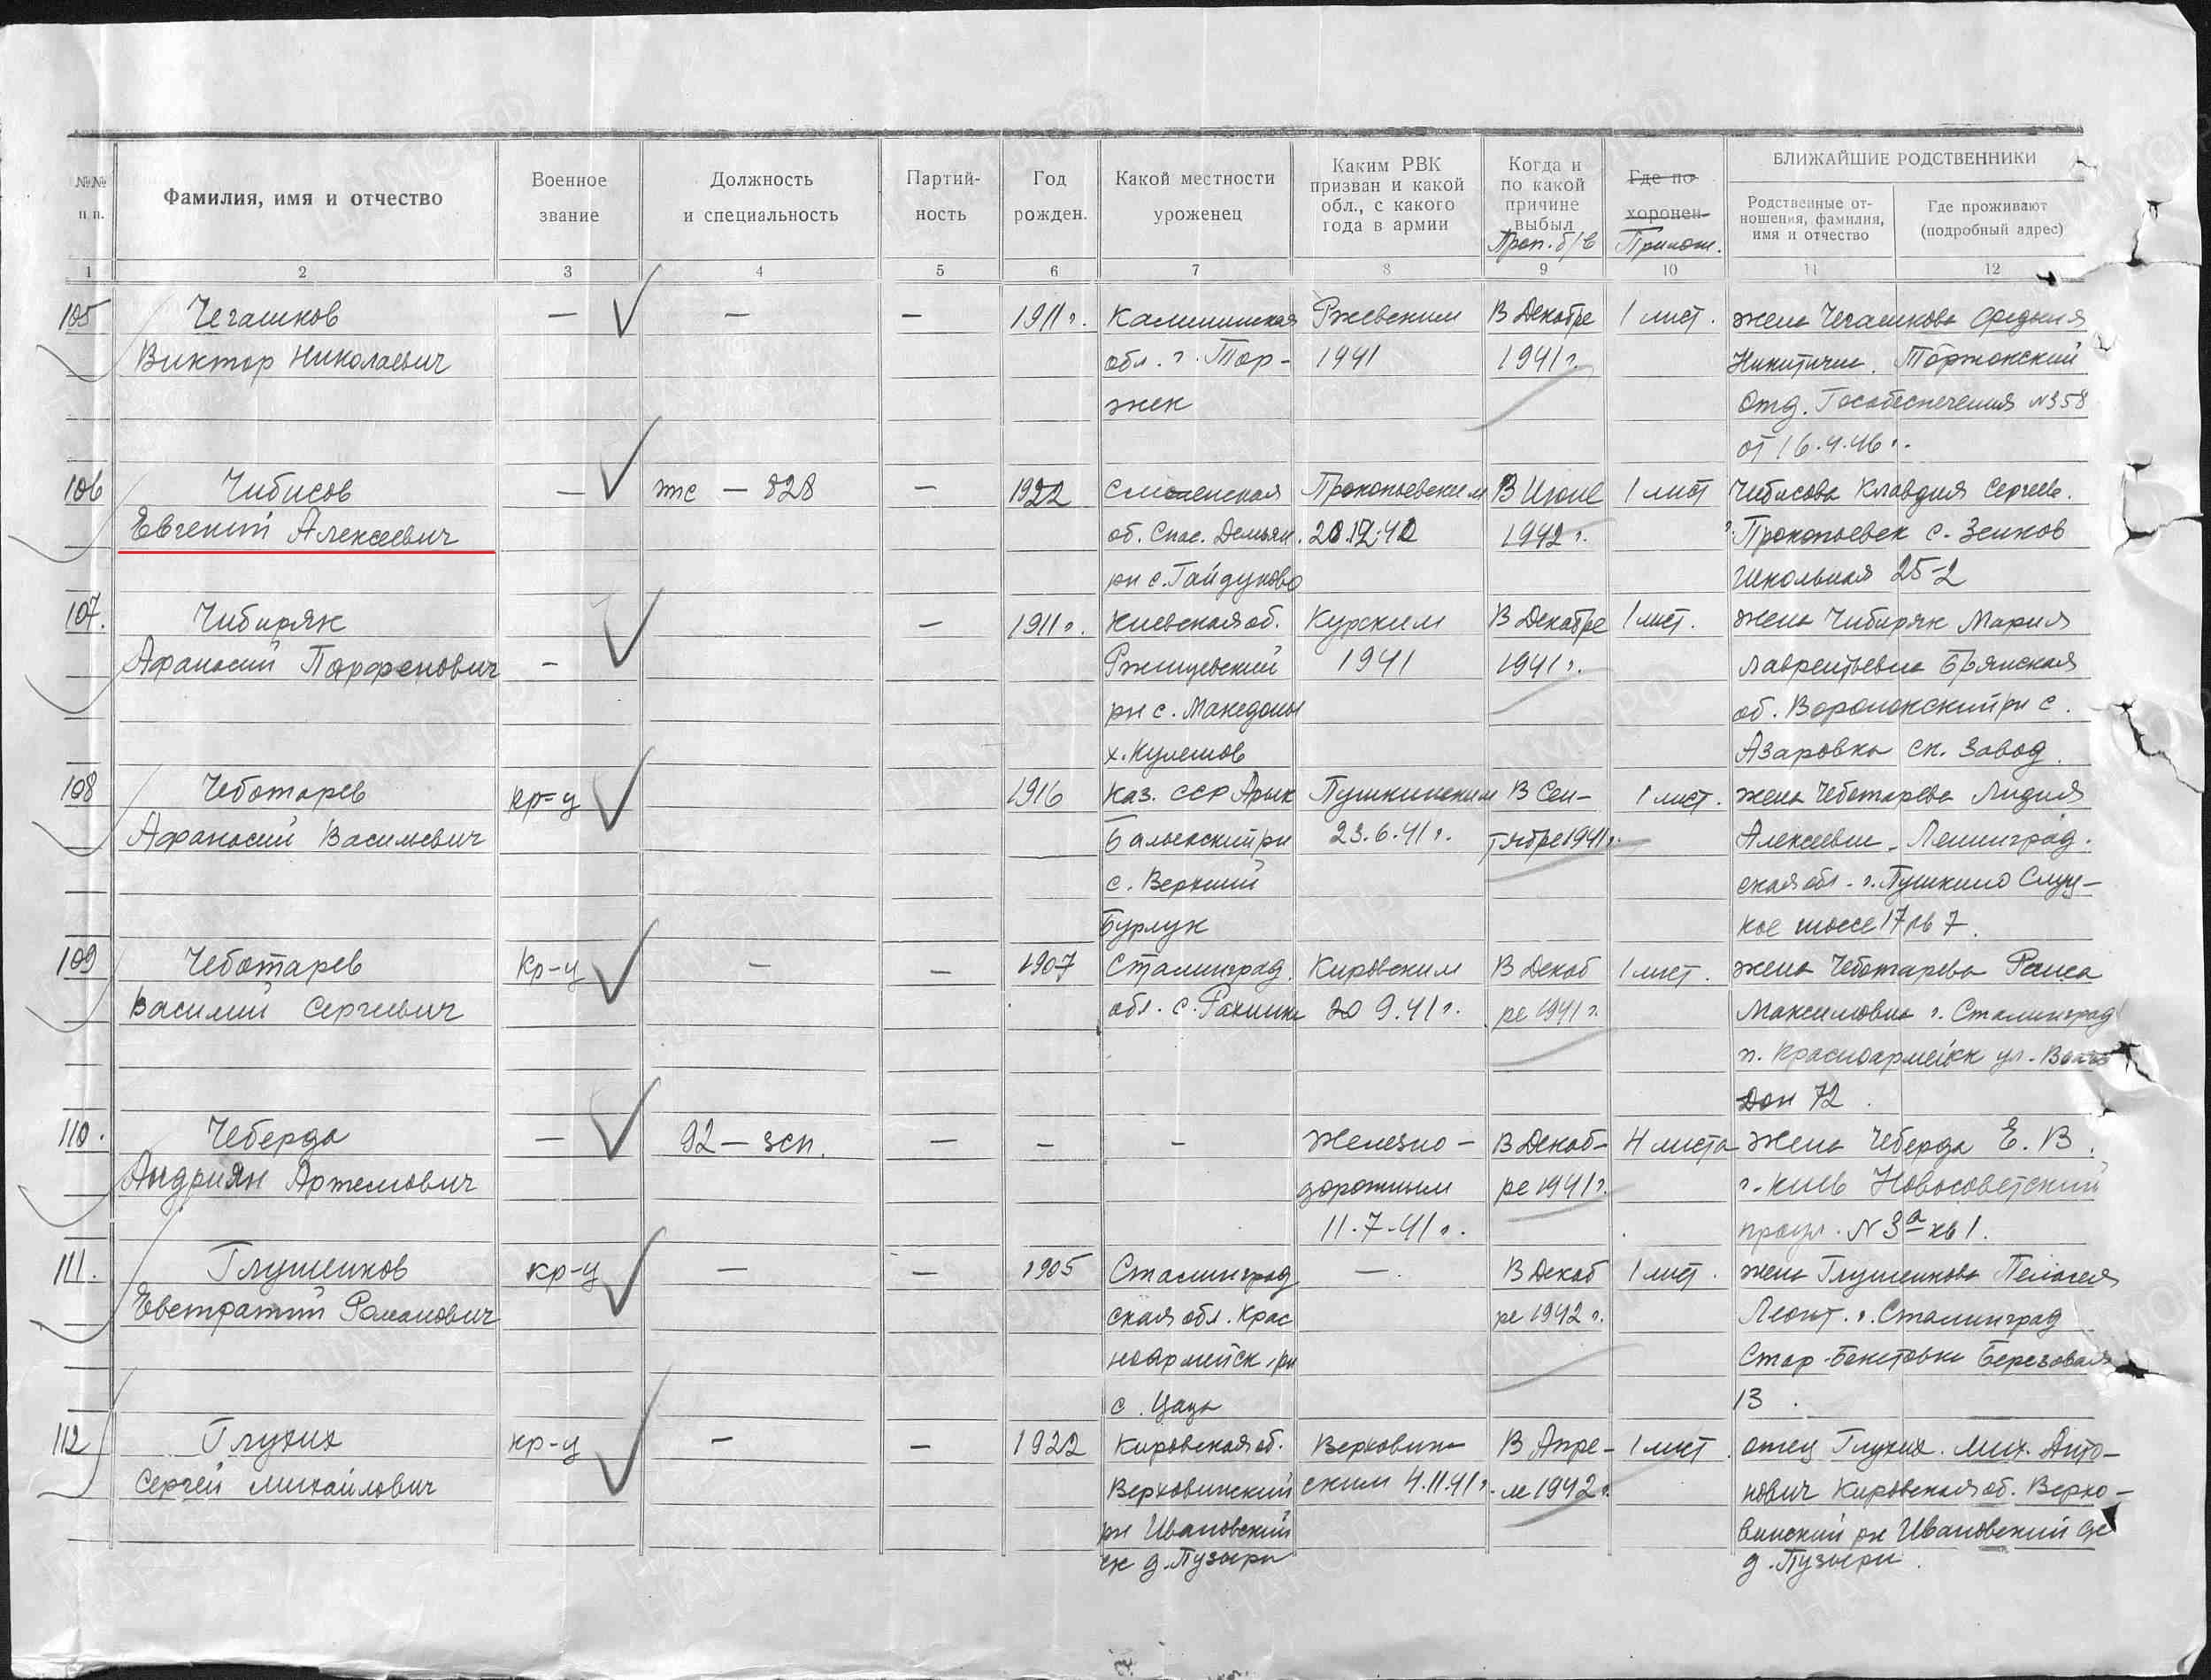 №№ п. п.
Фамилия, имя и отчество
Военное звание
Должность и специальность
Партий-
ность
Год рожден.
Какой местности уроженец
Каким РВК
призван и какой
обл., с какого
года в армии
Когда и
по какой
причине
выбыл
Проп. б/в
Где по-
хоронен
Прилож.
БЛИЖАЙШИЕ РОДСТВЕННИКИ
Родственные от-
ношения, фамилия,
имя и отчество
Где проживают
(подробный адрес)
1 2 3 4 5 6 7 8 9 10 11 12
105 Чегашков — — — 1911 г. Калининская Ржевским В Декабре 1 лист. жена Чегашкова
Виктор Николаевич обл. г. Тор- 1941 1941 г. Никитичн. Торжокский
жек Отд. Гособеспечения №358
от 16.4.46 г.
106 Чибисов — жс — 828 — 1922 Смоленская Прокопьевским В Июле 1 лист Чибисова Клавдия Сергеев.
Евгений Алексеевич об. Спас. Демьян. 1942 г. г. Прокопьевск с. Зенков
рн с. Гайдуково Школьная 25-2
107. Чибиряк — 1911 г. Киевская об. Курским В Декабре 1 лист. жена Чибиряк Мария
Афанасий Парфенович — Ржищевский 1941 1941 г. Лаврентьевна Брянская
рн с. Македоны об. рн с.
х. Кулешов Азаровка сп. завод.
108 Чеботарев кр-ц 1916 Каз. ССР Арык Пушкинским В Сен- 1 лист. жена Чеботарева Лидия
Афанасий Васильевич Балыкский рн 23.6.41 г. тябре 1941 г. Алексеевн. Ленинград.
с. Верхний ская обл. г. Пушкино Слуц-
Бурлук кое шоссе 17 кв 7.
109 Чеботарев кр-ц — — 1907 Сталинград. Кировским В Декаб 1 лист. жена Чеботарева Раиса
Василий Сергеевич обл. с. Рахинка 20 9.41 г. ре 1941 г. Максимовна г. Сталинград
п. Красноармейск ул. Волго
Дон 72.
110. Чеберда — 92 — зсп. — — — Железно- В Декаб- 4 листа жена Чеберда Е. В.
Андриян Артемович дорожным ре 1941 г. г. Киев Новосоветский
11.7.41 г. № 3а кв 1.
111. Глушенков кр-ц — — 1905 Сталинград —. В Декаб 1 лист. жена Глушенкова Пелагея
Евстратий Романович ская обл. Крас ре 1942 г. Леонт. г. Сталинград
ноармейск. рн Стар-Бекетовка Березовая
с. Цаца 13.
112 Глухих кр-ц — — 1922 Кировская об. Верховин- В Апре- 1 лист. отец Глухих. Мих. Анто-
Сергей Михайлович Верховинский ским 4.11.41 г. ле 1942 г. нович Кировская об. Верхо-
рн Ивановский винский рн Ивановский с/с
с/с д. Пузыри д. Пузыри.